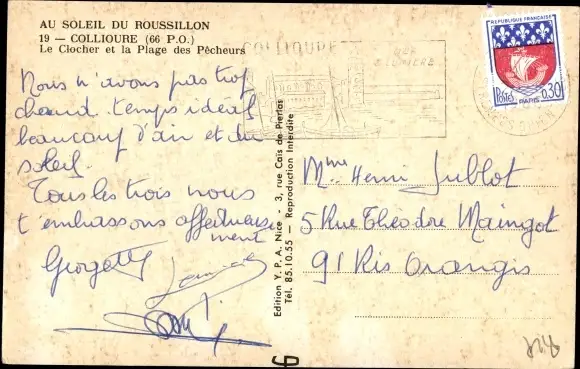 AU SOLEIL DU ROUSSILLON
19 — COLLIOURE (66 P.O.)
Le Clocher et la Plage des Pêcheurs
Nous n'avons pas trop
chaud. temps idéal
beaucoup d'air et du
soleil.
Tous les trois nous
t'embrassons affectueuse
ment
Georgette
Edition Y. P. A. Nice - 3, rue Cais de Pierlas
Tél. 85.10.55 — Reproduction Interdite
COLLIOURE
MER
LUMIERE
REPUBLIQUE FRANÇAISE
POSTES
0,30
PARIS
Mme Henri Jublot
5 Rue Théodre Maingot
91 Ris Orangis